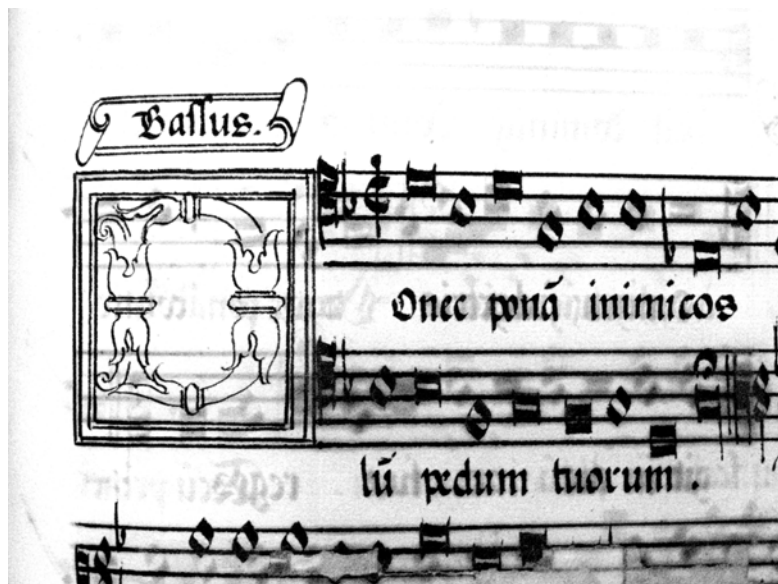 Bassus.
Donec ponā inimicos
lū pedum tuorum.